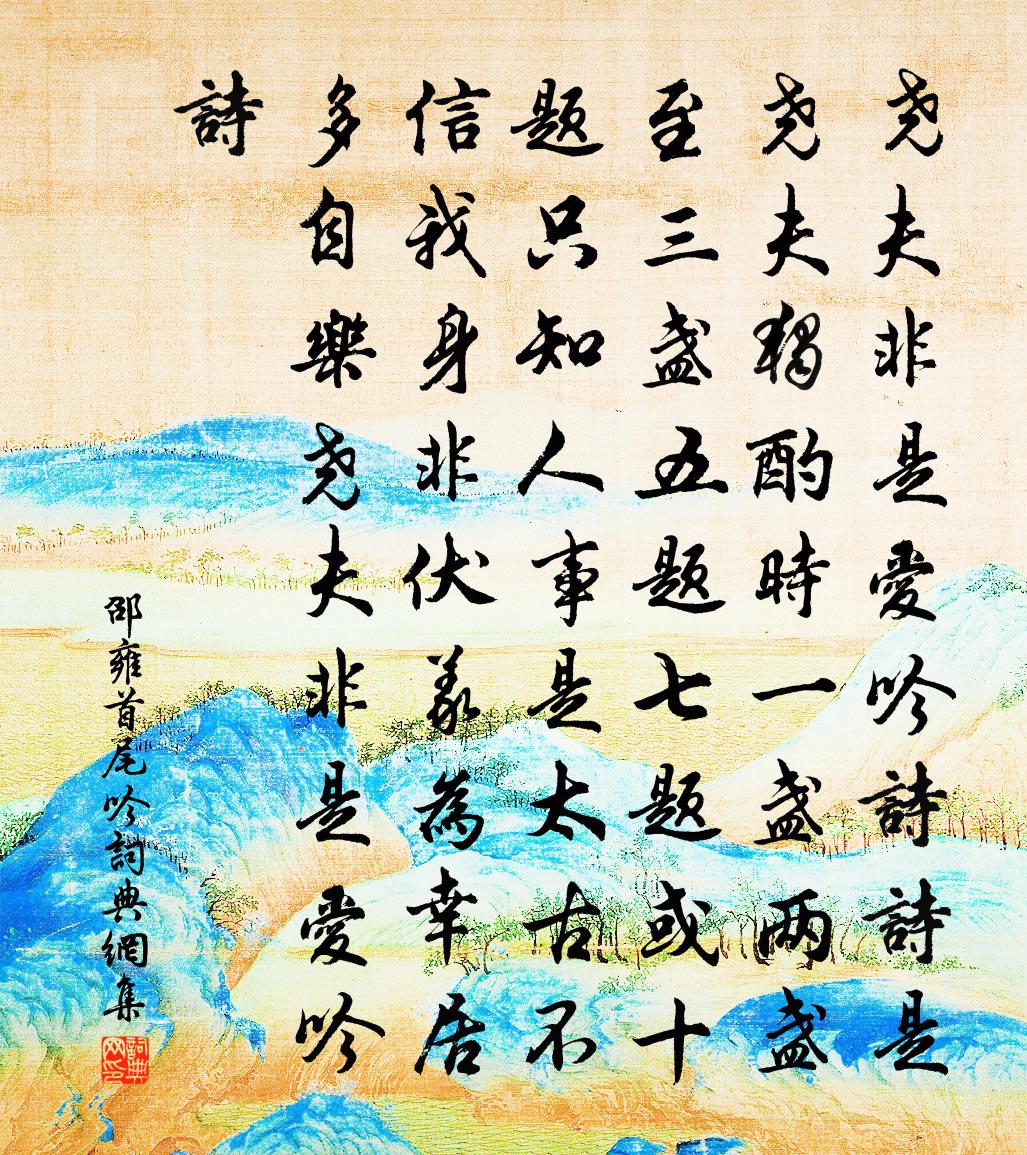 尧夫非是愛吟詩詩是
尧夫獨酌時一盏兩盏
至三盏五題七題或十
題只知人事是太古不
信我身非伏羲為幸居
多自樂尧夫非是愛吟
詩
邵雍首尾吟詞典網集
詞典網印